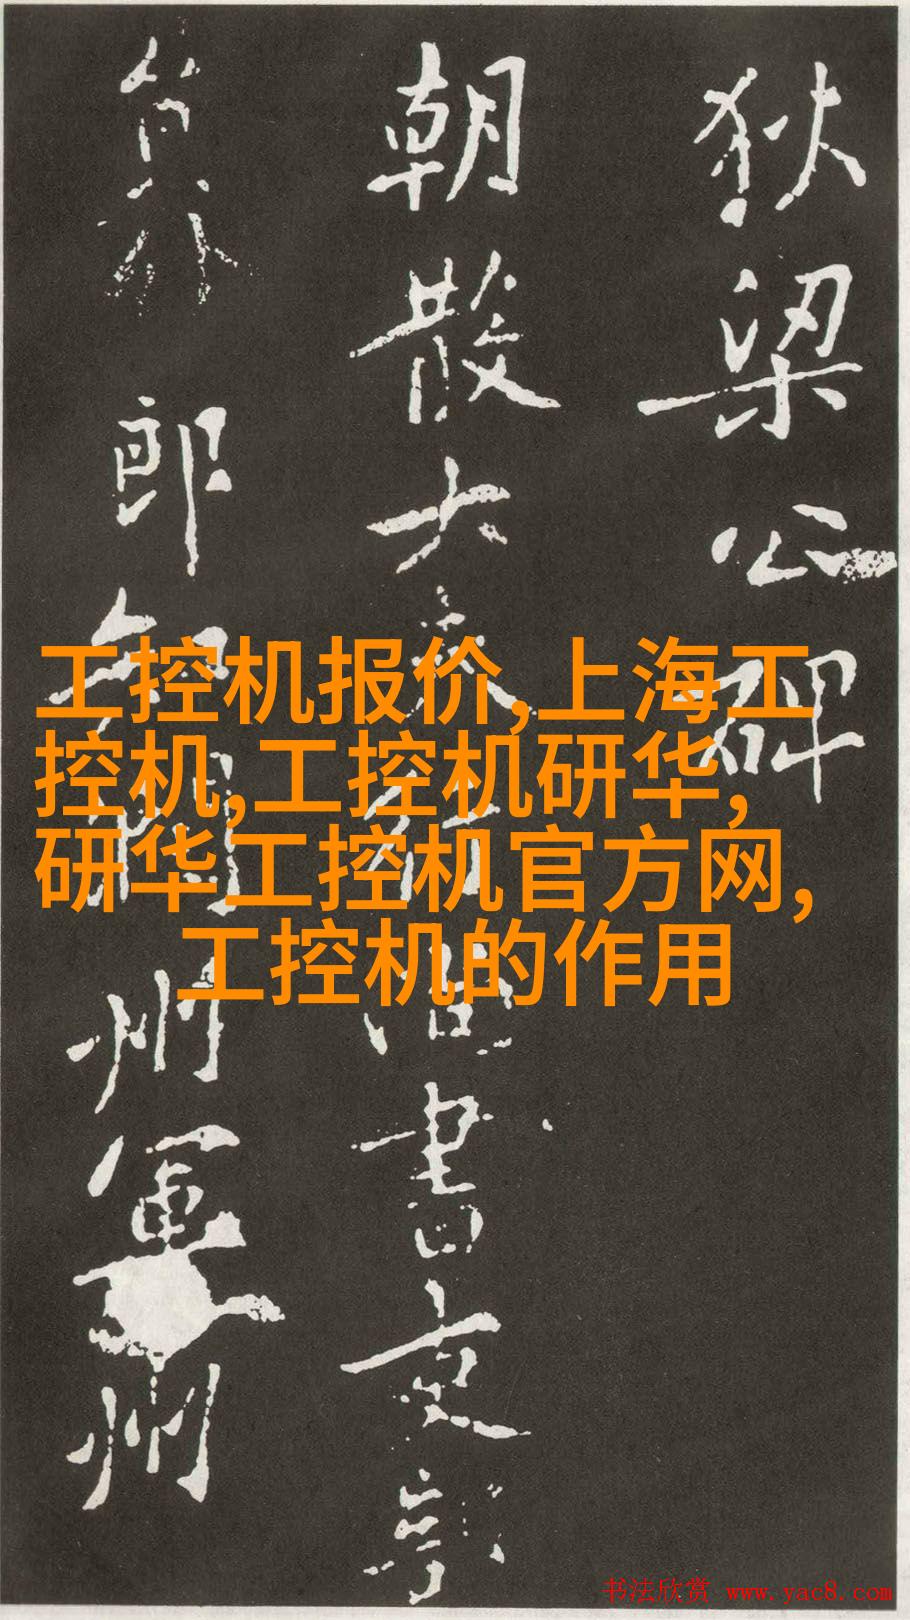 狄梁公碑
朝散大夫行尚書吏部
員外郎知潤州軍州
工控机报价,上海工
控机,工控机研华,
研华工控机官方网,
工控机的作用
书法欣赏 www.yac8.com